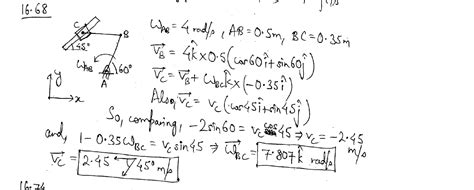 16.68
C
B
45°
ω_AB
60°
A
y
x
ω_AB = 4 rad/s, AB = 0.5m, BC = 0.35m
V_B = 4k̂ × 0.5(cos60î + sin60ĵ)
V_C = V_B + ω_BC k̂ × (-0.35î)
Also, V_C = v_C (cos45î + sin45ĵ)
So, comparing, -2sin60 = v_C cos45 ⇒ v_C = -2.45 m/s
and, 1 - 0.35ω_BC = v_C sin45 ⇒ ω_BC = 7.807k̂ rad/s
V_C = 2.45 45° m/s
16.74